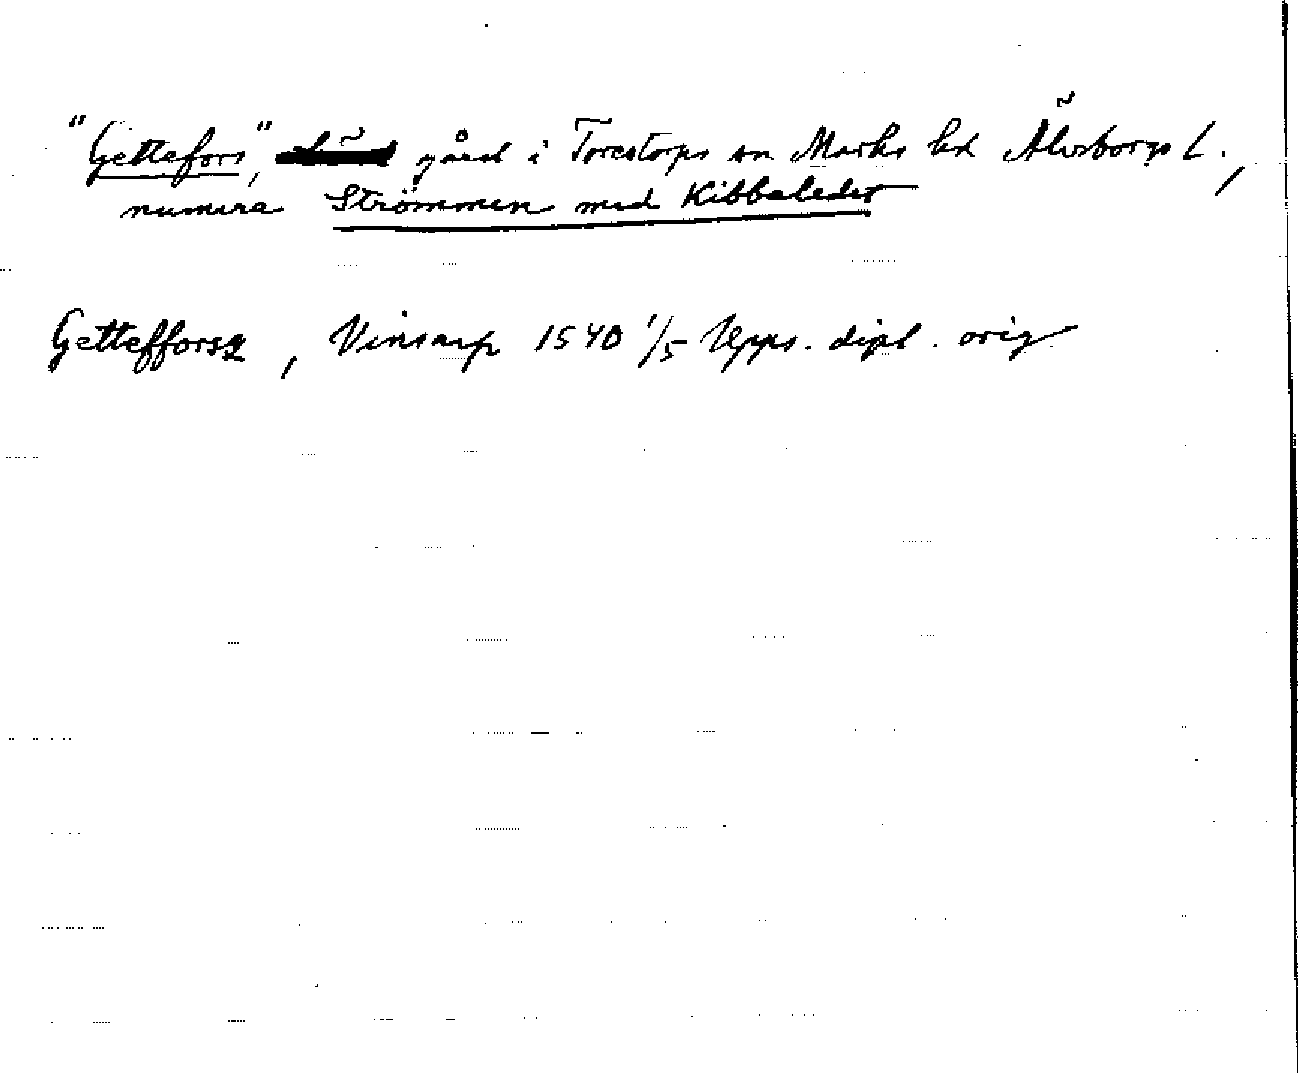 "Gettefors", gård i Torestorps sn Marks hd Älvsborgs l.,
numera Strömmen med Kibbaleder
Gettefforsz, Vinsarp 1540 1/5 Upps. dipl. orig